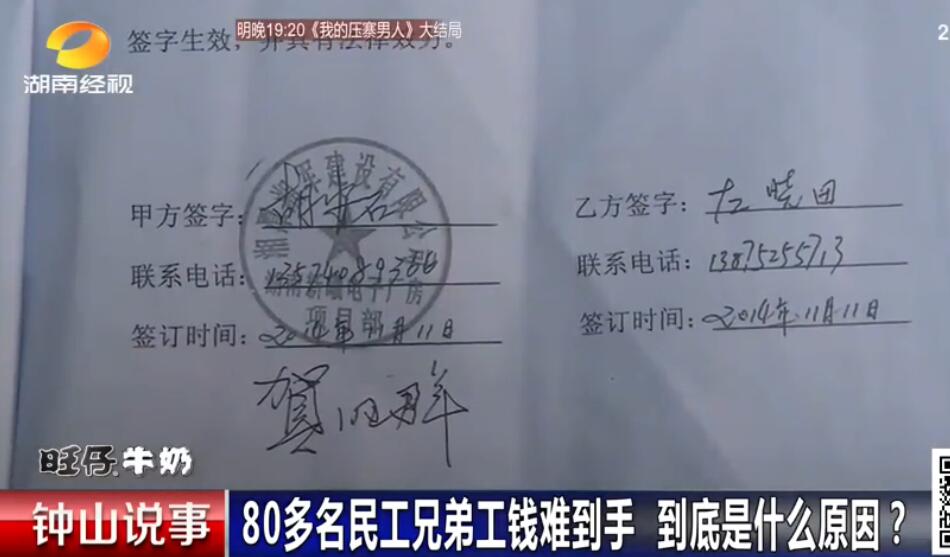 明晚19:20《我的压寨男人》大结局
2
签字生效，并具有法律效力。
湖南经视
建设有限公司
项目部
甲方签字：
联系电话：
签订时间：2014年11月11日
乙方签字：左晓田
联系电话：13875255713
签订时间：2014年11月11日
旺仔牛奶
钟山说事
80多名民工兄弟工钱难到手 到底是什么原因？